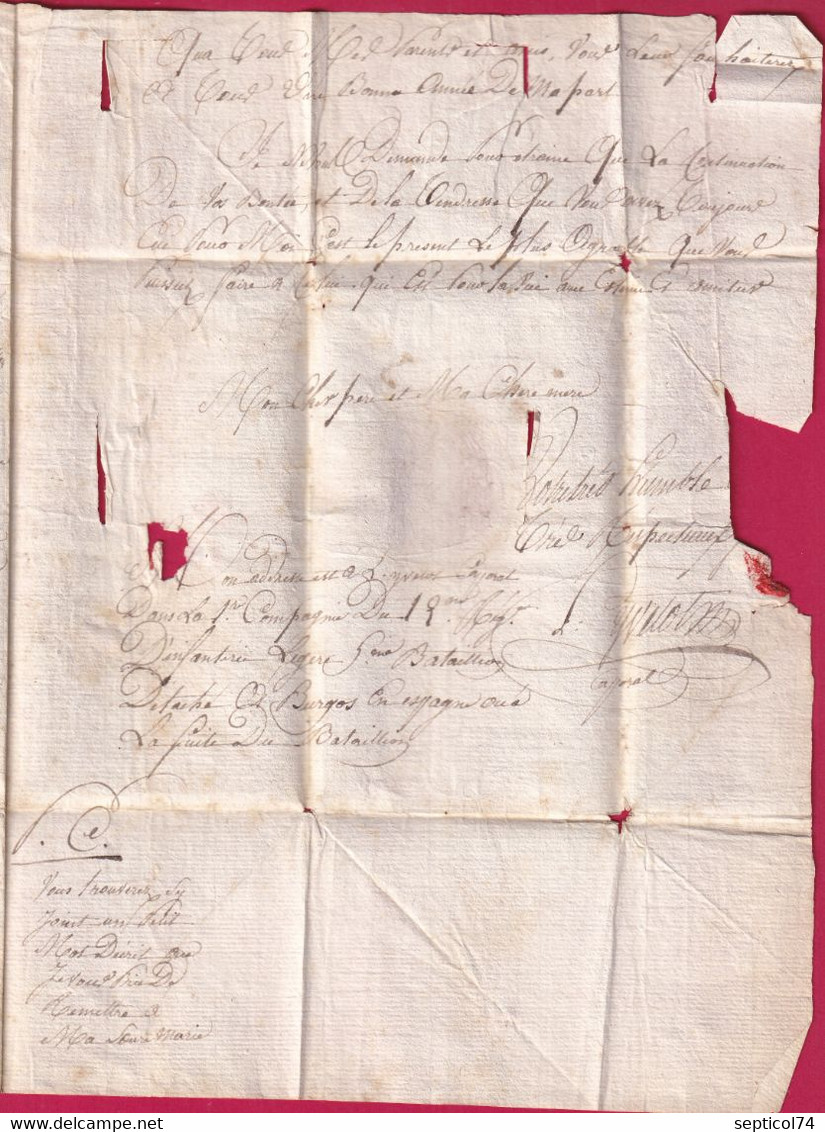 Qua tous Mes Parents et amis, Vous Leur souhaiterez
et tous Une Bonne Année De Ma part
Je Demande pour étraine Que La Continuation
De Vos Bontée, et De La tendresse Que Vous avez toujours
Eue pour Moi C'est le présent Le plus Agréable Que Vous
Puissiez faire a Celui qui Est pour la vie avec Estime Et amitiée
Mon Cher père et Ma Chere mere
Votre très humble
Très Respectueux
Mon addresse est a Caporal
Dans La 1re Compagnie Du 12me Regt
D'infanterie Légere 5eme Bataillion
Caporal
Detaché a Burgos En espagne ou a
La suite Du Bataillion
P. Ce.
Vous trouverez Sy
Joint un Petit
Mot D'écrit que
Je vous Prie De
Remettre a
Ma Sœur Marie
septicol74